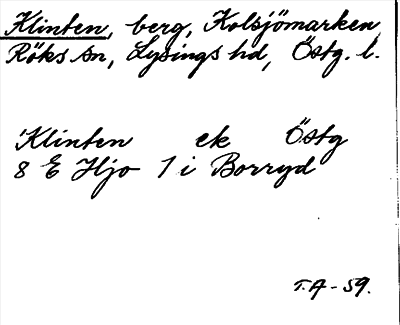 Klinten, berg, Kolsjömarken,
Röks sn, Lysings hd, Östg. l.
Klinten ek Östg
8 E Hjo 1 i Borryd
T.A - 59.